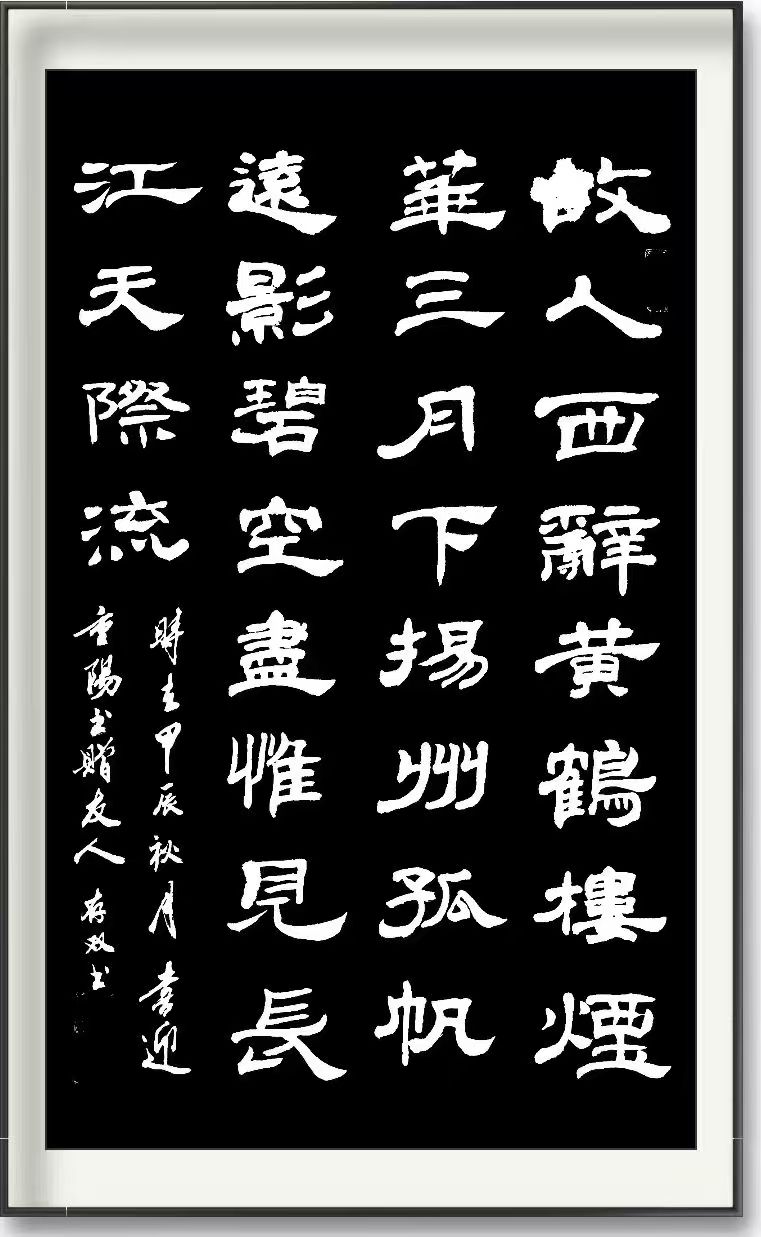 故人西辭黄鶴樓煙
華三月下揚州孤帆
遠影碧空盡惟見長
江天際流
時在甲辰秋月喜迎
重陽书贈友人 存双书